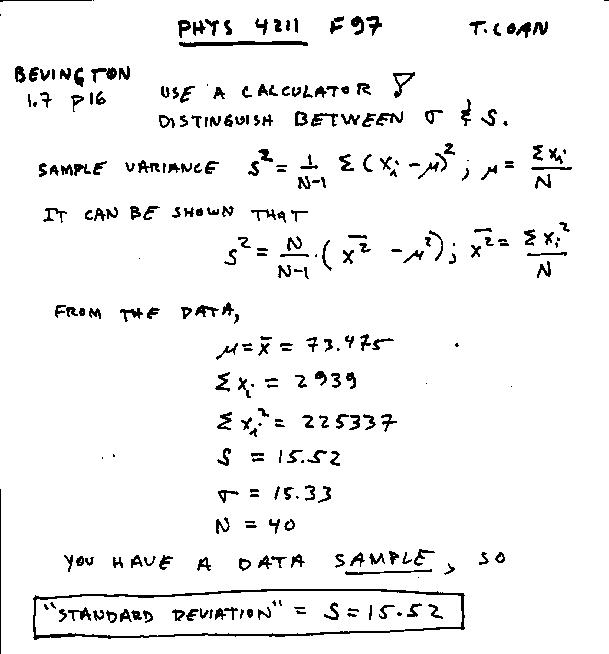 PHYS 4211 F97 T. COAN
BEVINGTON
1.7 P16 USE A CALCULATOR &
DISTINGUISH BETWEEN σ & S.
SAMPLE VARIANCE S² = 1/(N-1) Σ(xᵢ - μ)² ; μ = Σxᵢ/N
IT CAN BE SHOWN THAT
S² = N/(N-1) · ( x̄² - μ² ) ; x̄² = Σxᵢ²/N
FROM THE DATA,
μ = x̄ = 73.475
Σxᵢ = 2939
Σxᵢ² = 225337
S = 15.52
σ = 15.33
N = 40
YOU HAVE A DATA SAMPLE, SO
"STANDARD DEVIATION" = S = 15.52